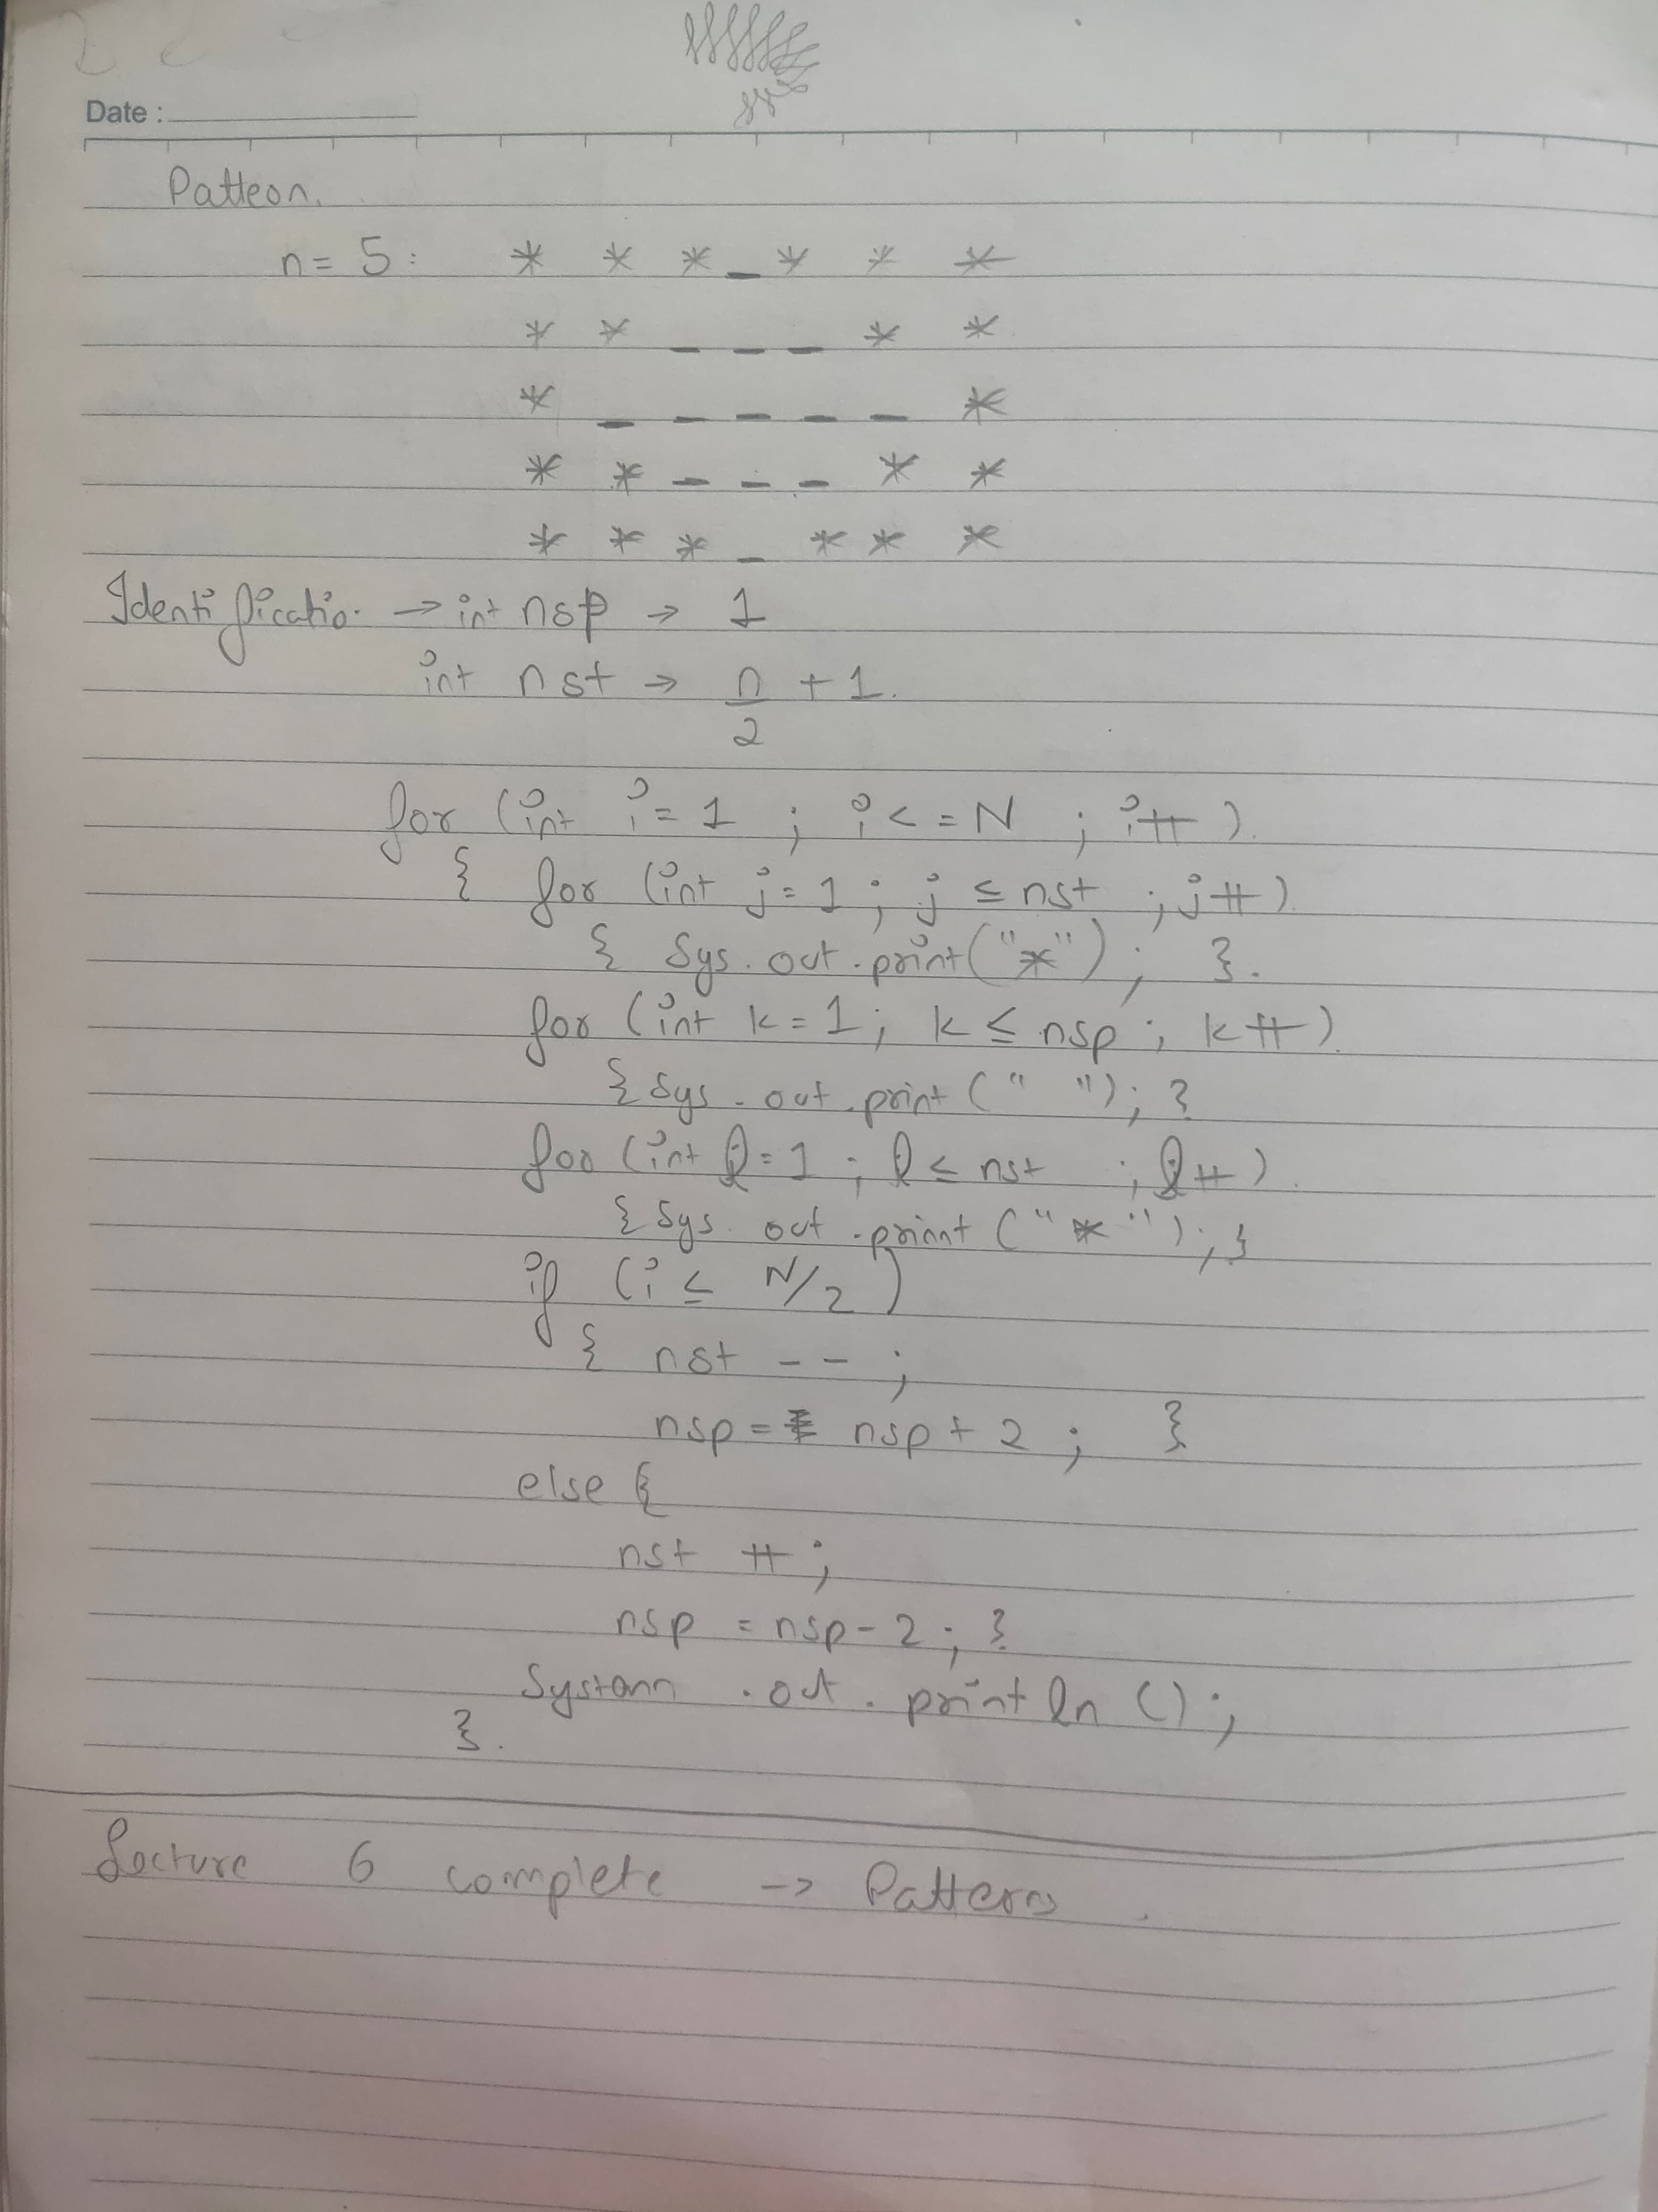 Date :
Pattern.
n = 5 : * * * _ * * *
* * _ _ _ * *
* _ _ _ _ _ *
* * _ _ _ * *
* * * _ * * *
Identificatio. → int nsp → 1
int nst → n/2 + 1.
for (int i = 1 ; i < = N ; i++ ).
{ for (int j = 1 ; j ≤ nst ; j++ )
{ Sys. out . print ("*") ; }.
for (int k = 1 ; k ≤ nsp ; k++ )
{ Sys . out . print (" ") ; }
for (int l = 1 ; l ≤ nst ; l++ ).
{ Sys. out . prinnt ("*") ; }
if (i ≤ N/2 )
{ nst - - ;
nsp = nsp + 2 ; }
else {
nst ++ ;
nsp = nsp - 2 ; }
System . out . print ln () ;
}.
Lecture 6 complete → Pattern .